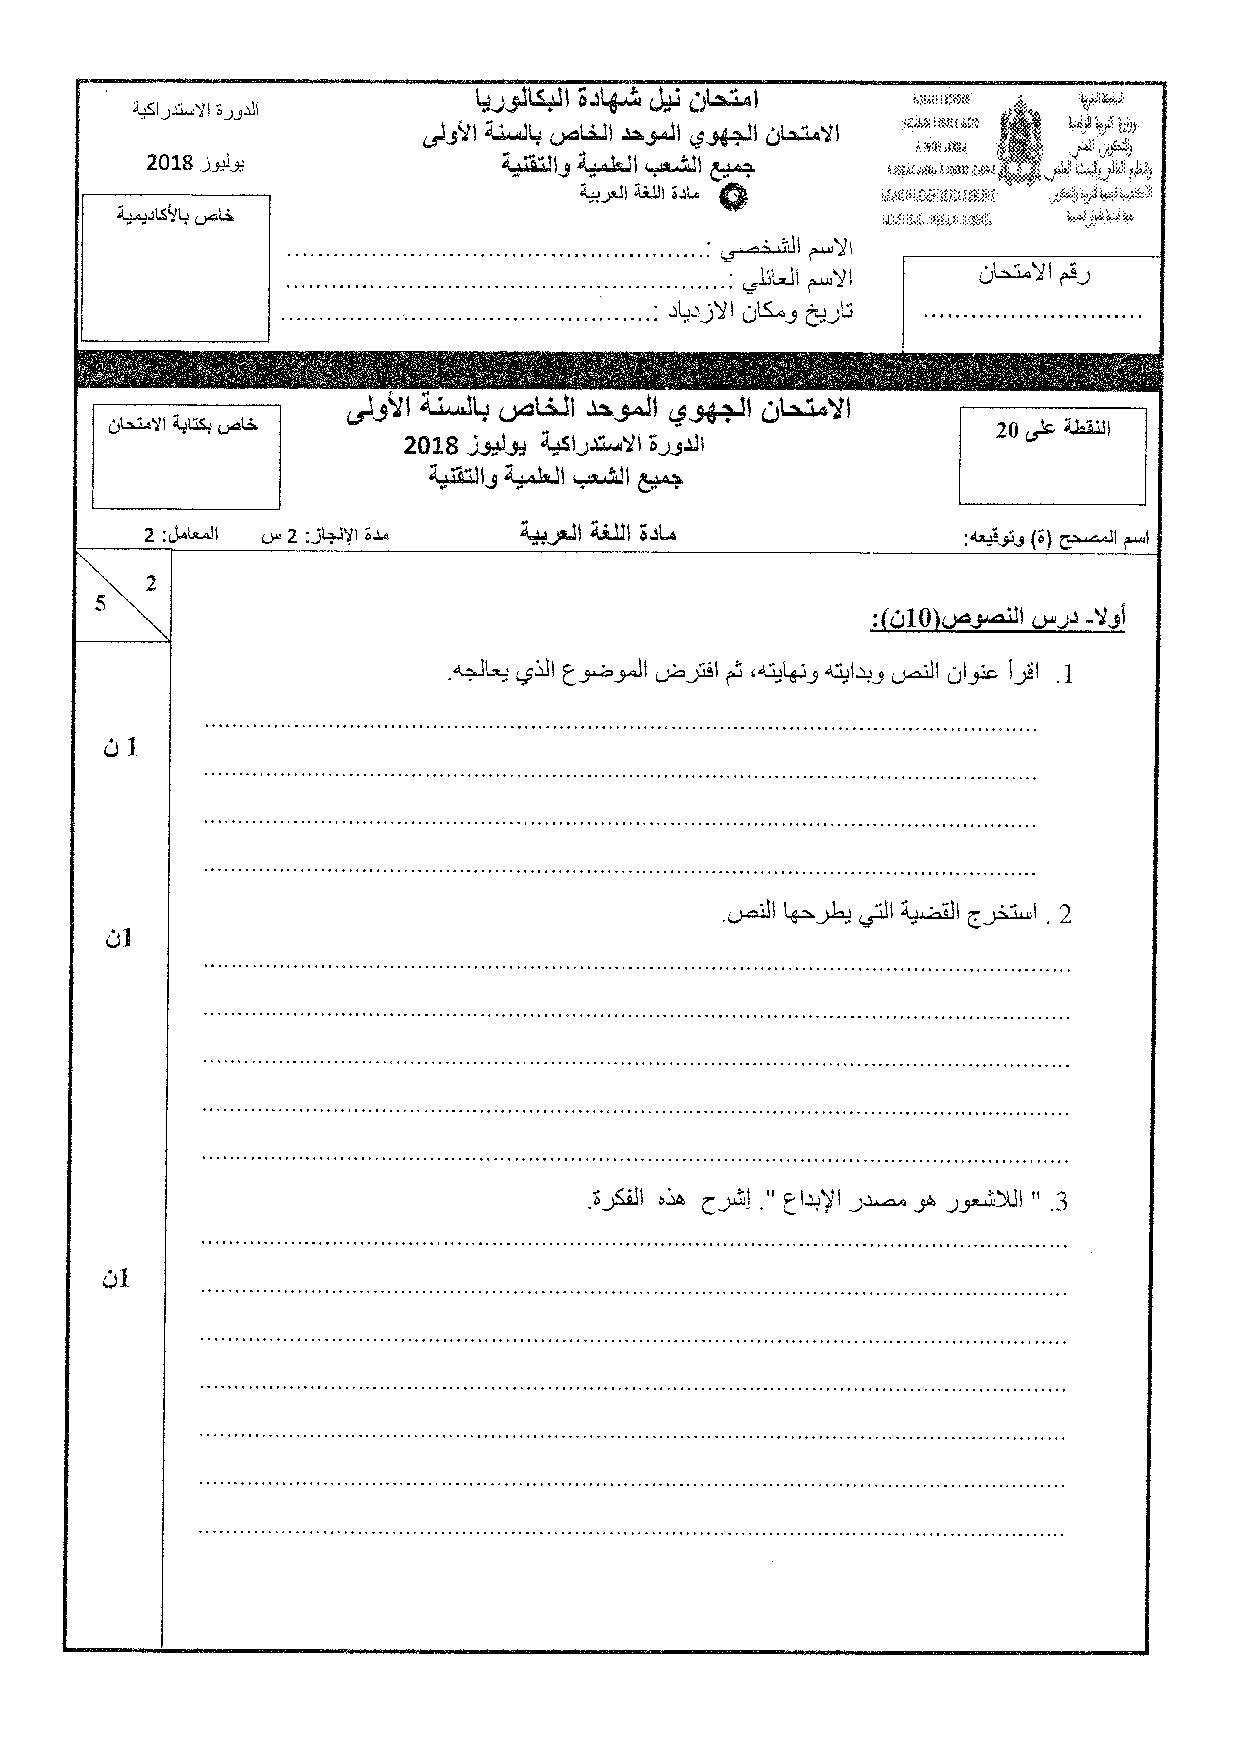 امتحان نيل شهادة البكالوريا
الامتحان الجهوي الموحد الخاص بالسنة الأولى
جميع الشعب العلمية والتقنية
مادة اللغة العربية
الدورة الاستدراكية
يوليوز 2018
خاص بالأكاديمية
الاسم الشخصي :......................................................
الاسم العائلي :.........................................................
تاريخ ومكان الازدياد :................................................
رقم الامتحان
............................
الامتحان الجهوي الموحد الخاص بالسنة الأولى
الدورة الاستدراكية يوليوز 2018
جميع الشعب العلمية والتقنية
النقطة على 20
خاص بكتابة الامتحان
اسم المصحح (ة) وتوقيعه:
مادة اللغة العربية
مدة الإنجاز: 2 س
المعامل: 2
2
5
أولا- درس النصوص(10ن):
1. اقرأ عنوان النص وبدايته ونهايته، ثم افترض الموضوع الذي يعالجه.
1 ن
2 . استخرج القضية التي يطرحها النص.
1ن
3. " اللاشعور هو مصدر الإبداع ". إشرح هذه الفكرة.
1ن